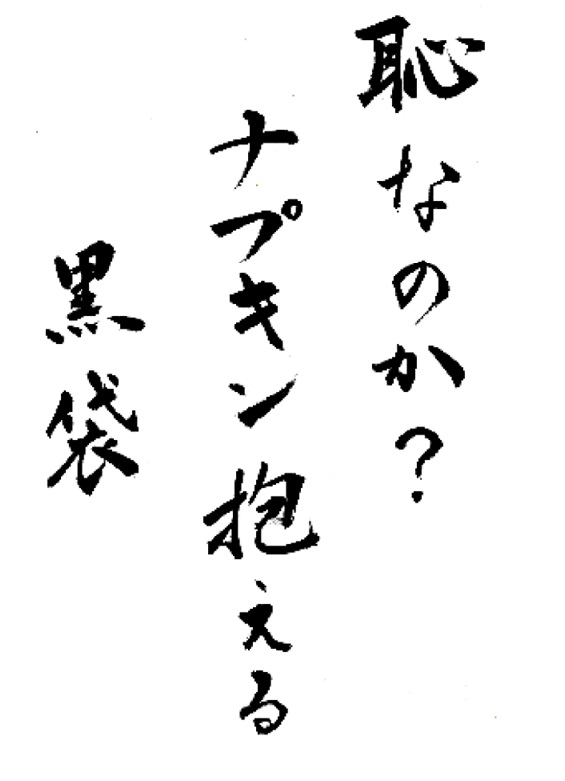 恥なのか?
ナプキン抱える
黒袋